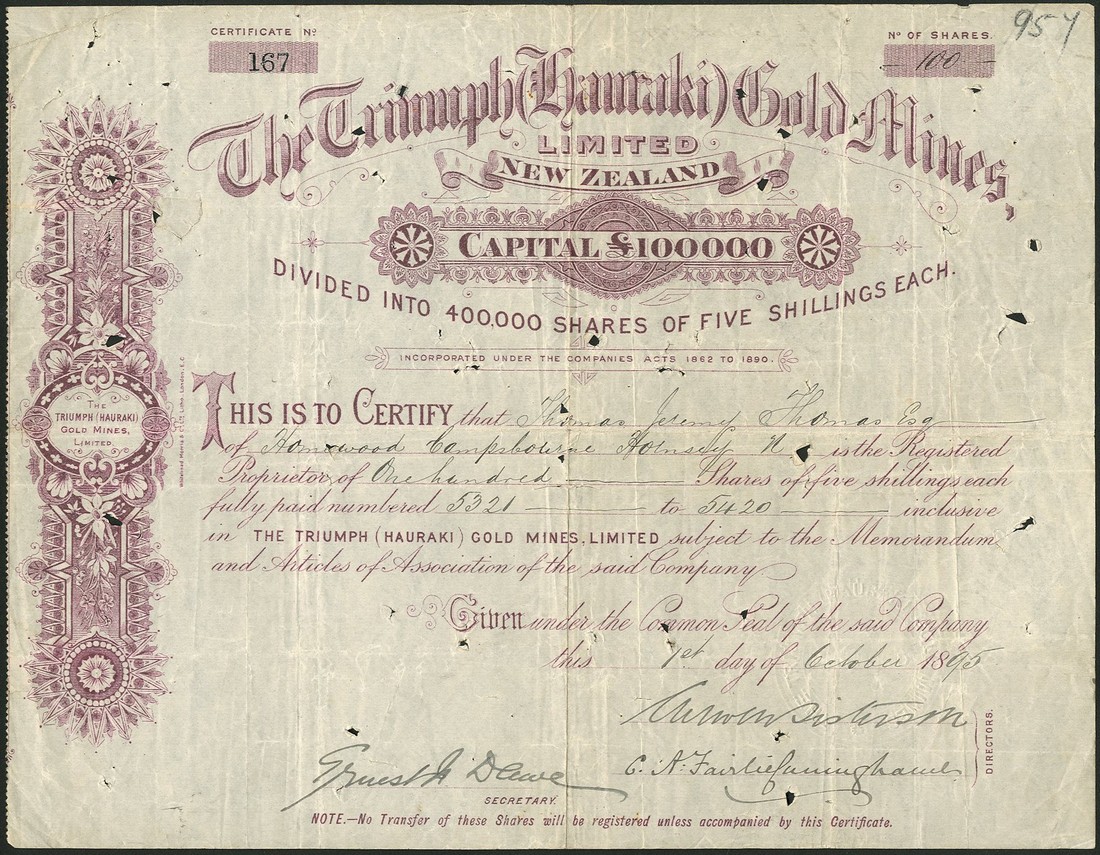 CERTIFICATE Nº
167
Nº OF SHARES.
100
957
The Triumph (Hauraki) Gold Mines,
LIMITED
NEW ZEALAND
CAPITAL £100000
DIVIDED INTO 400,000 SHARES OF FIVE SHILLINGS EACH.
INCORPORATED UNDER THE COMPANIES ACTS 1862 TO 1890.
THE
TRIUMPH (HAURAKI)
GOLD MINES,
LIMITED.
THIS IS TO CERTIFY that Thomas Jeremy Thomas Esq
of Homewood Campsbourne Hornsey N is the Registered
Proprietor of One hundred Shares of five shillings each
fully paid numbered 5321 to 5420 inclusive
in THE TRIUMPH (HAURAKI) GOLD MINES, LIMITED subject to the Memorandum
and Articles of Association of the said Company
Given under the Common Seal of the said Company
this 1st day of October 1895
C. A. Fairlie Cuninghame
DIRECTORS.
Ernest
SECRETARY.
NOTE.—No Transfer of these Shares will be registered unless accompanied by this Certificate.